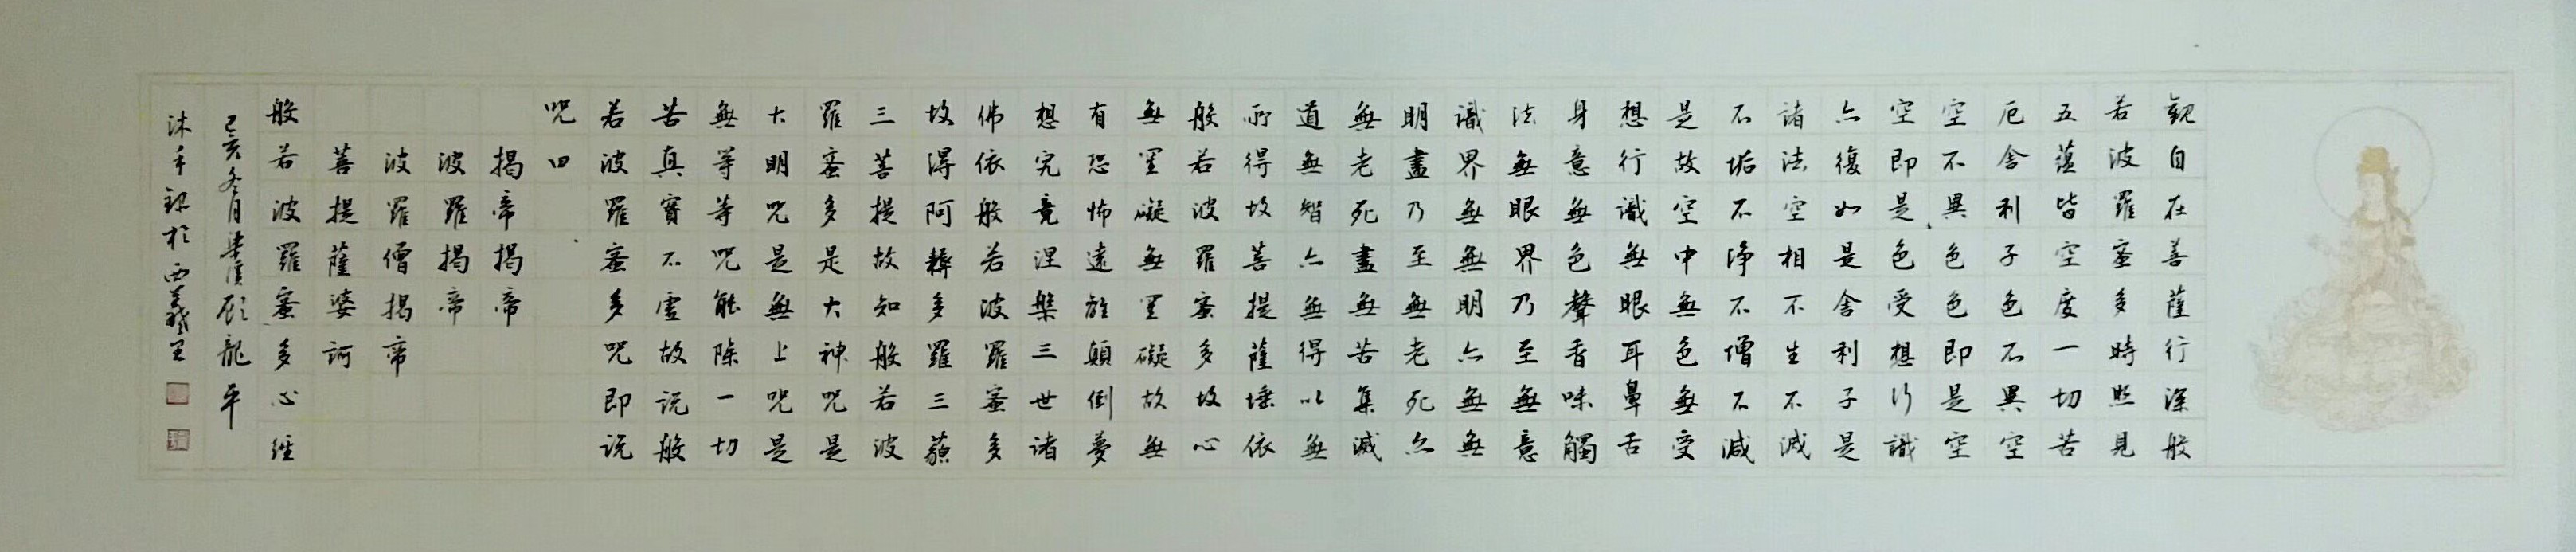 觀自在菩薩行深般
若波羅蜜多時照見
五蘊皆空度一切苦
厄舍利子色不異空
空不異色色即是空
空即是色受想行識
亦復如是舍利子是
諸法空相不生不滅
不垢不淨不增不減
是故空中無色無受
想行識無眼耳鼻舌
身意無色聲香味觸
法無眼界乃至無意
識界無無明亦無無
明盡乃至無老死亦
無老死盡無苦集滅
道無智亦無得以無
所得故菩提薩埵依
般若波羅蜜多故心
無罣礙無罣礙故無
有恐怖遠離顛倒夢
想究竟涅槃三世諸
佛依般若波羅蜜多
故得阿耨多羅三藐
三菩提故知般若波
羅蜜多是大神咒是
大明咒是無上咒是
無等等咒能除一切
苦真實不虛故說般
若波羅蜜多咒即說
咒曰
揭帝揭帝
波羅揭帝
波羅僧揭帝
菩提薩婆訶
般若波羅蜜多心經
己亥冬月梁溪顧龍平
沐手錄於西羲里